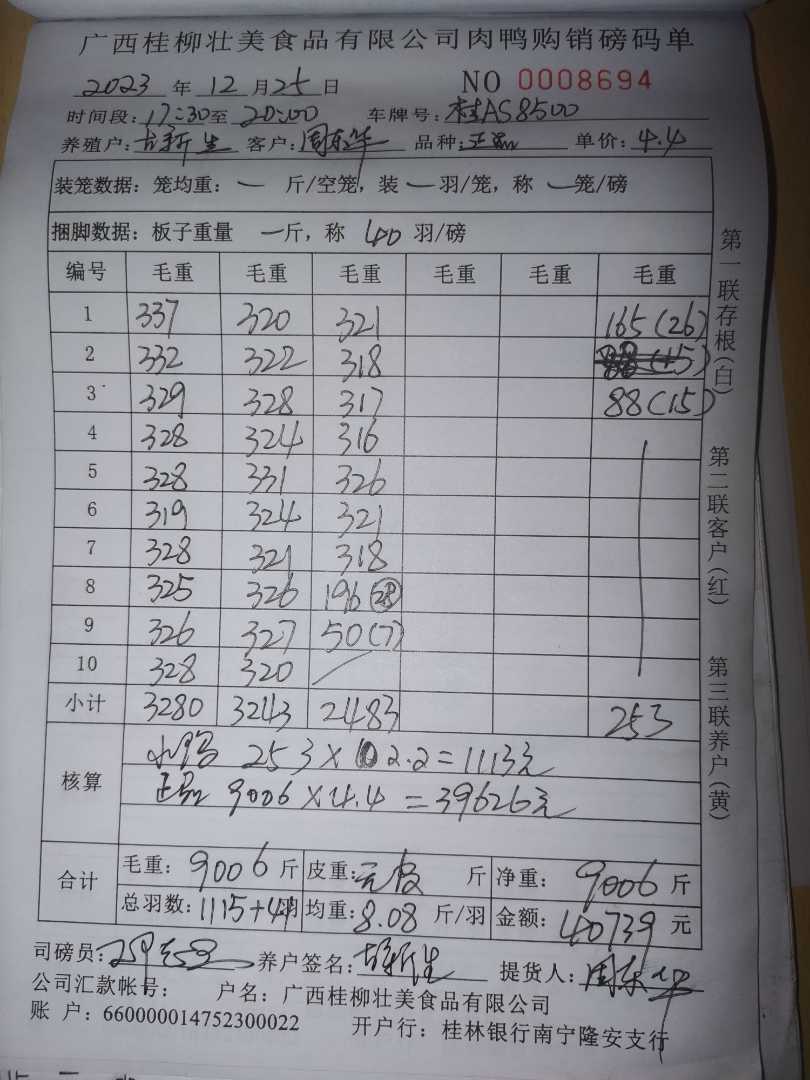 广西桂柳壮美食品有限公司肉鸭购销磅码单
2023 年 12 月 25 日 NO 0008694
时间段: 17:30 至 20:00 车牌号: 桂AS8500
养殖户: 新生 客户: 周东华 品种: 正品 单价: 4.4
装笼数据: 笼均重: 一 斤/空笼, 装 一 羽/笼, 称 一 笼/磅
捆脚数据: 板子重量 一 斤, 称 40 羽/磅
编号 毛重 毛重 毛重 毛重 毛重 毛重
1 337 320 321 165(26)
2 332 322 318
3 329 328 317 88(15)
4 328 324 316
5 328 331 326
6 319 324 321
7 328 321 318
8 325 326 196(28)
9 326 327 50(7)
10 328 320
小计 3280 3243 2483 253
核算
小 253× 2.2=1113元
正品 9006×4.4=39626元
合计
毛重: 9006 斤 皮重: 斤 净重: 9006 斤
总羽数: 1115+41羽 均重: 8.08 斤/羽 金额: 40739 元
司磅员: 养户签名: 新生 提货人: 周东华
公司汇款帐号: 户名: 广西桂柳壮美食品有限公司
账 户: 660000014752300022 开户行: 桂林银行南宁隆安支行
第一联存根(白)
第二联客户(红)
第三联养户(黄)